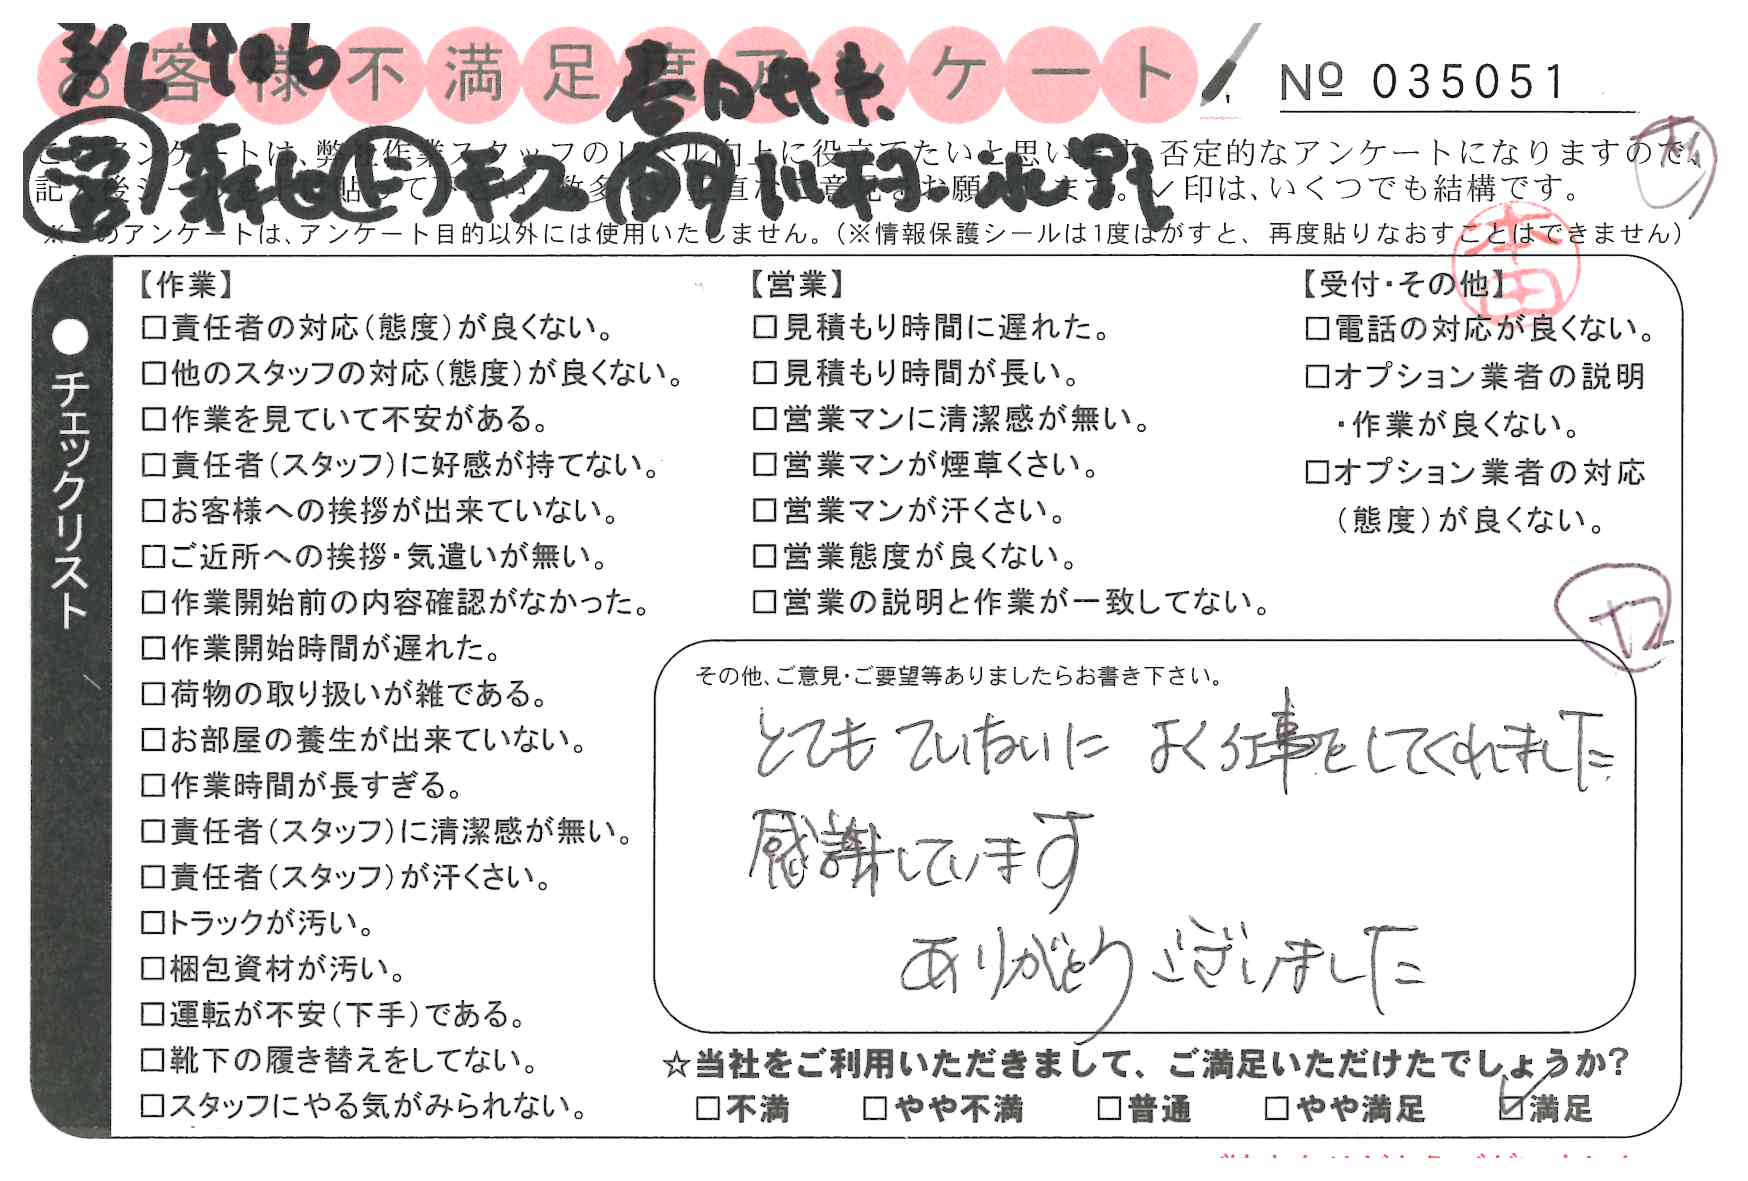 お客様不満足度アンケート
3/6 406
春日
№ 035051
このアンケートは、弊社作業スタッフのレベル向上に役立てたいと思います。否定的なアンケートになりますので、
営
記入後シールを上に貼って下さい。数多くの正直なご意見をお願いします。✓印は、いくつでも結構です。
川村 水野
※このアンケートは、アンケート目的以外には使用いたしません。（※情報保護シールは1度はがすと、再度貼りなおすことはできません）
本田
●チェックリスト
【作業】
□責任者の対応（態度）が良くない。
□他のスタッフの対応（態度）が良くない。
□作業を見ていて不安がある。
□責任者（スタッフ）に好感が持てない。
□お客様への挨拶が出来ていない。
□ご近所への挨拶・気遣いが無い。
□作業開始前の内容確認がなかった。
□作業開始時間が遅れた。
□荷物の取り扱いが雑である。
□お部屋の養生が出来ていない。
□作業時間が長すぎる。
□責任者（スタッフ）に清潔感が無い。
□責任者（スタッフ）が汗くさい。
□トラックが汚い。
□梱包資材が汚い。
□運転が不安（下手）である。
□靴下の履き替えをしてない。
□スタッフにやる気がみられない。
【営業】
□見積もり時間に遅れた。
□見積もり時間が長い。
□営業マンに清潔感が無い。
□営業マンが煙草くさい。
□営業マンが汗くさい。
□営業態度が良くない。
□営業の説明と作業が一致してない。
【受付・その他】
□電話の対応が良くない。
□オプション業者の説明
・作業が良くない。
□オプション業者の対応
（態度）が良くない。
その他、ご意見・ご要望等ありましたらお書き下さい。
とてもていねいに よく仕事をしてくれました
感謝しています
ありがとうございました
☆当社をご利用いただきまして、ご満足いただけたでしょうか？
□不満 □やや不満 □普通 □やや満足 ☑満足